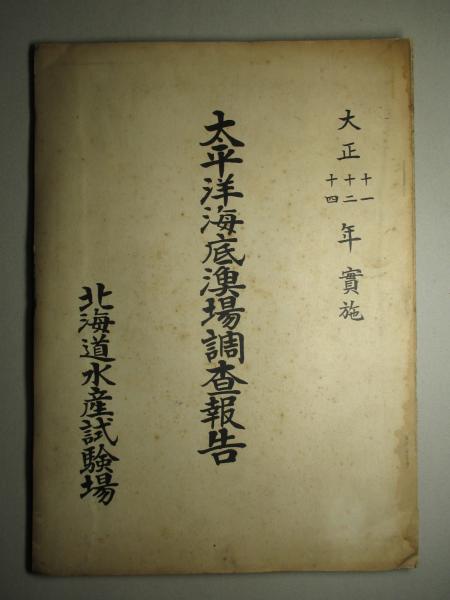 大正十一十二十四年實施
太平洋海底漁場調査報告
北海道水産試験場